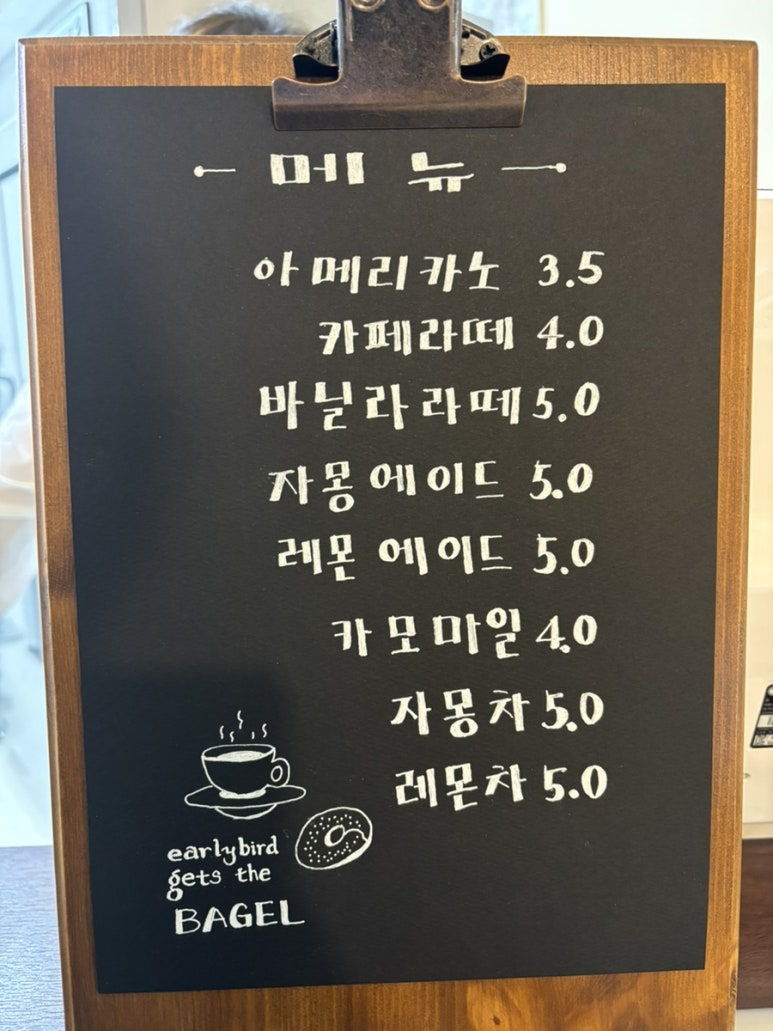 메뉴
아메리카노 3.5
카페라떼 4.0
바닐라라떼 5.0
자몽에이드 5.0
레몬에이드 5.0
카모마일 4.0
자몽차 5.0
레몬차 5.0
earlybird
gets the
BAGEL